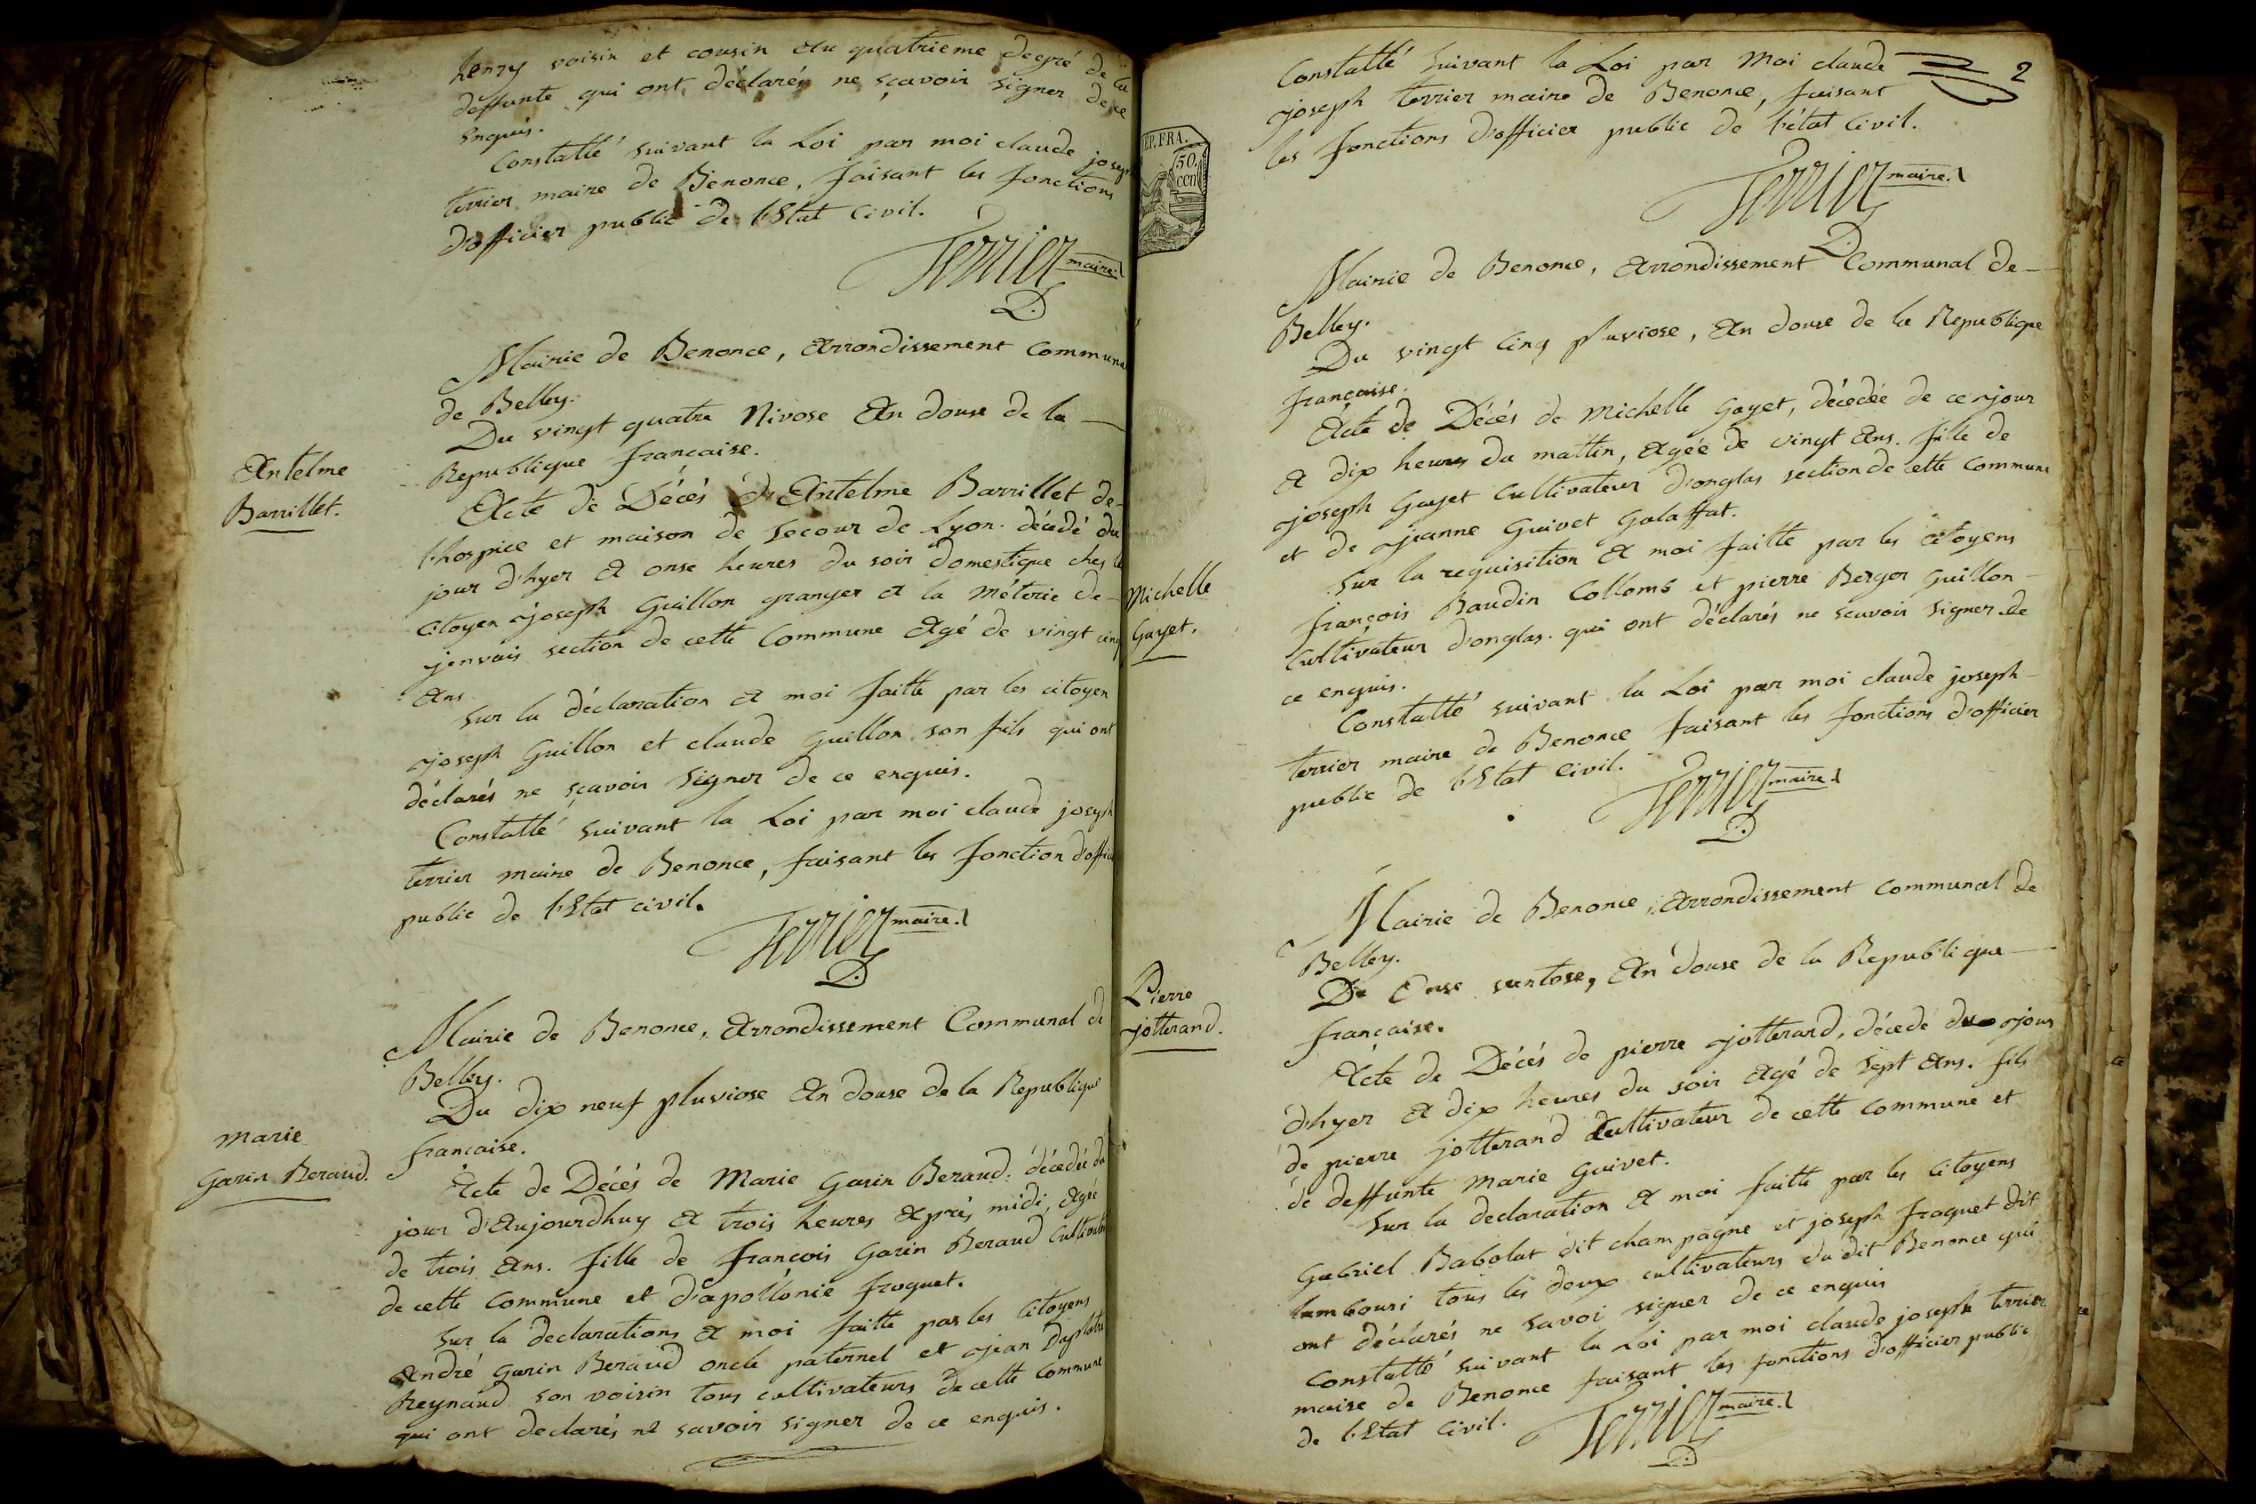 henry voisin et cousin au quatrieme degré de la
deffunte qui ont déclarés ne sçavoir signer de ce
enquis.
Constatté suivant la Loi par moi claude joseph
terrier maire de Benonce, faisant les fonctions
d'officier public de l'Etat Civil.
Terrier maire.
Mairie de Benonce, arrondissement Communal
de Belley.
Du vingt quatre Nivose An douse de la
Republique francaise.
Antelme
Barrillet.
Acte de Décés d'Antelme Barrillet de
l'hospice et maison de Secour de Lyon. décédé du
jour d'hyer a onse heures du soir domestique ches le
citoyen joseph Guillon granger a la Méterie de
jenvais section de cette Commune Agé de vingt cinq
Ans.
Sur la déclaration a moi faitte par les citoyen
joseph Guillon et claude Guillon son fils qui ont
déclarés ne sçavoir signer de ce enquis.
Constatté suivant la Loi par moi claude joseph
terrier maire de Benonce, faisant les fonction d'officier
public de l'Etat civil.
Terrier maire.
Mairie de Benonce, Arrondissement Communal de
Belley.
Du dix neuf pluviose An douse de la Republique
francaise.
Marie
Garin Beraud.
Acte de Décés de Marie Garin Beraud. décédée du
jour d'Aujourdhuy a trois heures Après midi, Agée
de trois Ans. fille de François Garin Beraud Cultivateur
de cette Commune et d'apollonie froguet.
Sur la declarations a moi faitte par les Citoyens
André Garin Beraud oncle paternel et jean
Reynaud son voisin tous cultivateurs de cette Commune
qui ont declarés ne savoir signer de ce enquis.
2
Constatté suivant la Loi par Moi claude
joseph terrier maire de Benonce, faisant
les fonctions d'officier public de l'état Civil.
Terrier maire.
EP. FRA.
50
cen
Mairie de Benonce, Arrondissement Communal de
Belley.
Du vingt Cinq pluviose, An douse de la Republique
française.
Acte de Décés de Michelle Gayet, décédée de ce jour
a dix heures du mattin, Agée de vingt Ans. fille de
joseph Gayet Cultivateur d'onglas section de cette Commune
et de jeanne Guivet Galaffat.
Michelle
Gayet.
Sur la requisition a moi faitte par les Citoyens
françois Baudin Collomb et pierre Berger Guillon
Cultivateur d'onglas. qui ont déclarés ne scavoir signer de
ce enquis.
Constatté suivant la Loi par moi claude joseph
terrier maire de Benonce faisant les fonctions d'officier
public de l'Etat Civil.
Terrier maire.
Mairie de Benonce, Arrondissement Communal de
Belley.
Du Onse ventose, An douse de la Republique
française.
Pierre
jotterand.
Acte de Décés de pierre jotterand, décede du jour
d'hyer a dix heures du soir Agé de sept Ans. fils
de pierre jotterand Cultivateur de cette Commune et
de deffunte Marie Guivet.
Sur la declaration a moi faitte par les Citoyens
Gabriel Babolat dit champagne et joseph froguet dit
lambouri tous les deux cultivateurs du dit Benonce qui
ont déclarés ne savoi signer de ce enquis
Constatté suivant la Loi par moi claude joseph terrier
maire de Benonce faisant les fonctions d'officier public
de l'Etat Civil.
Terrier maire.